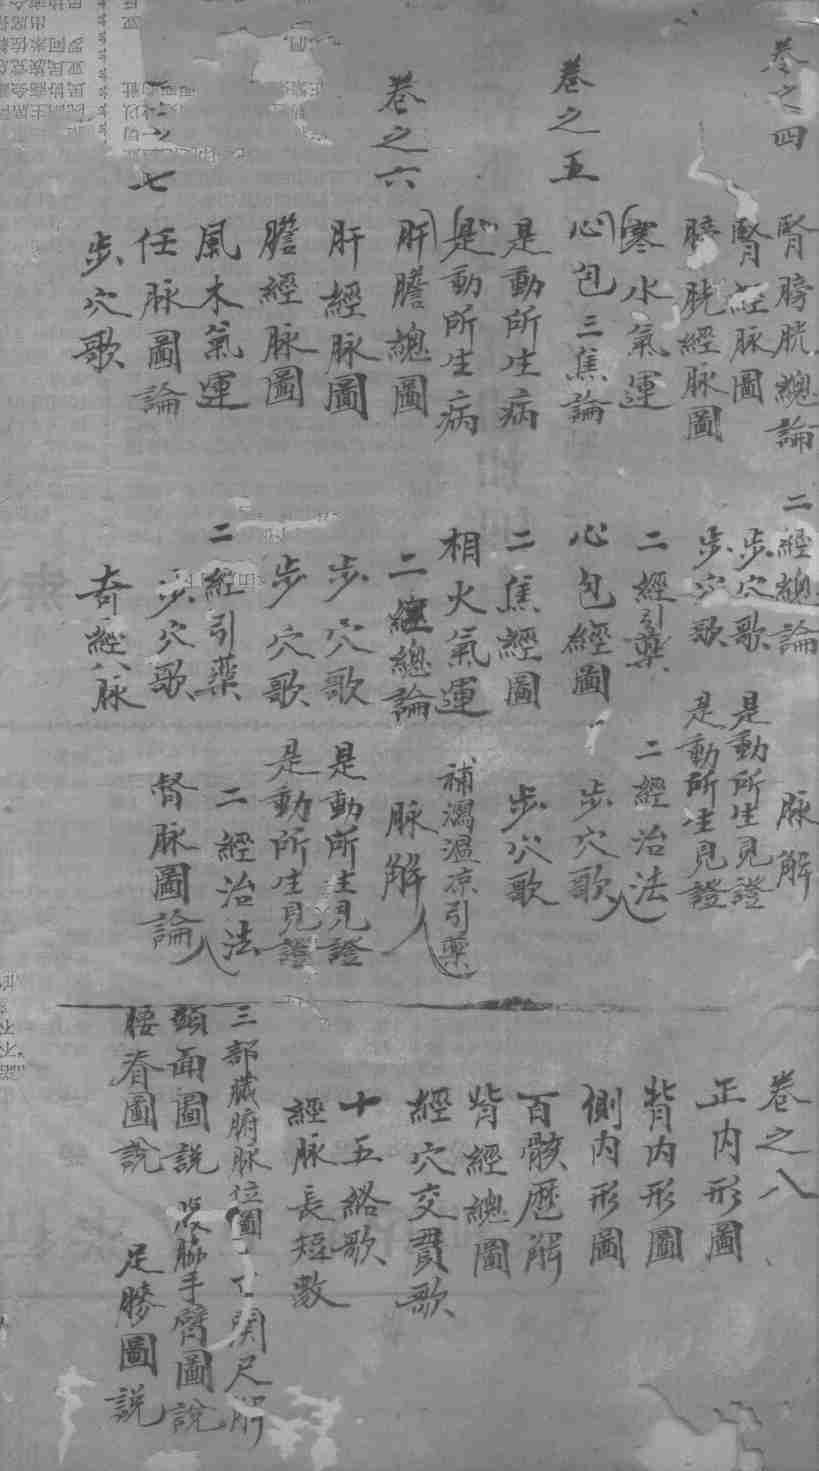 卷之四
腎膀胱總論 二經總論 脉解
腎經脉圖 步穴歌 是動所生見證
膀胱經脉圖 步穴歌 是動所生見證
寒水氣運 二經引藥 二經治法
卷之五
心包三焦論 心包經圖 步穴歌
是動所生病 二焦經圖 步穴歌
是動所生病 相火氣運 補瀉溫凉引藥
卷之六
肝膽總圖 二經總論 脉解
肝經脉圖 步穴歌 是動所生見證
膽經脉圖 步穴歌 是動所生見證
風木氣運 二經引藥 二經治法
之七
任脉圖論 步穴歌 督脉圖論
步穴歌 奇經八脉
卷之八
正内形圖
背内形圖
側内形圖
百骸歷解
背經總圖
經穴交貫歌
十五絡歌
經脉長短數
三部臟腑脉位圖 關尺解
頭面圖説 脇手臂圖説
腰脊圖説 足膝圖説